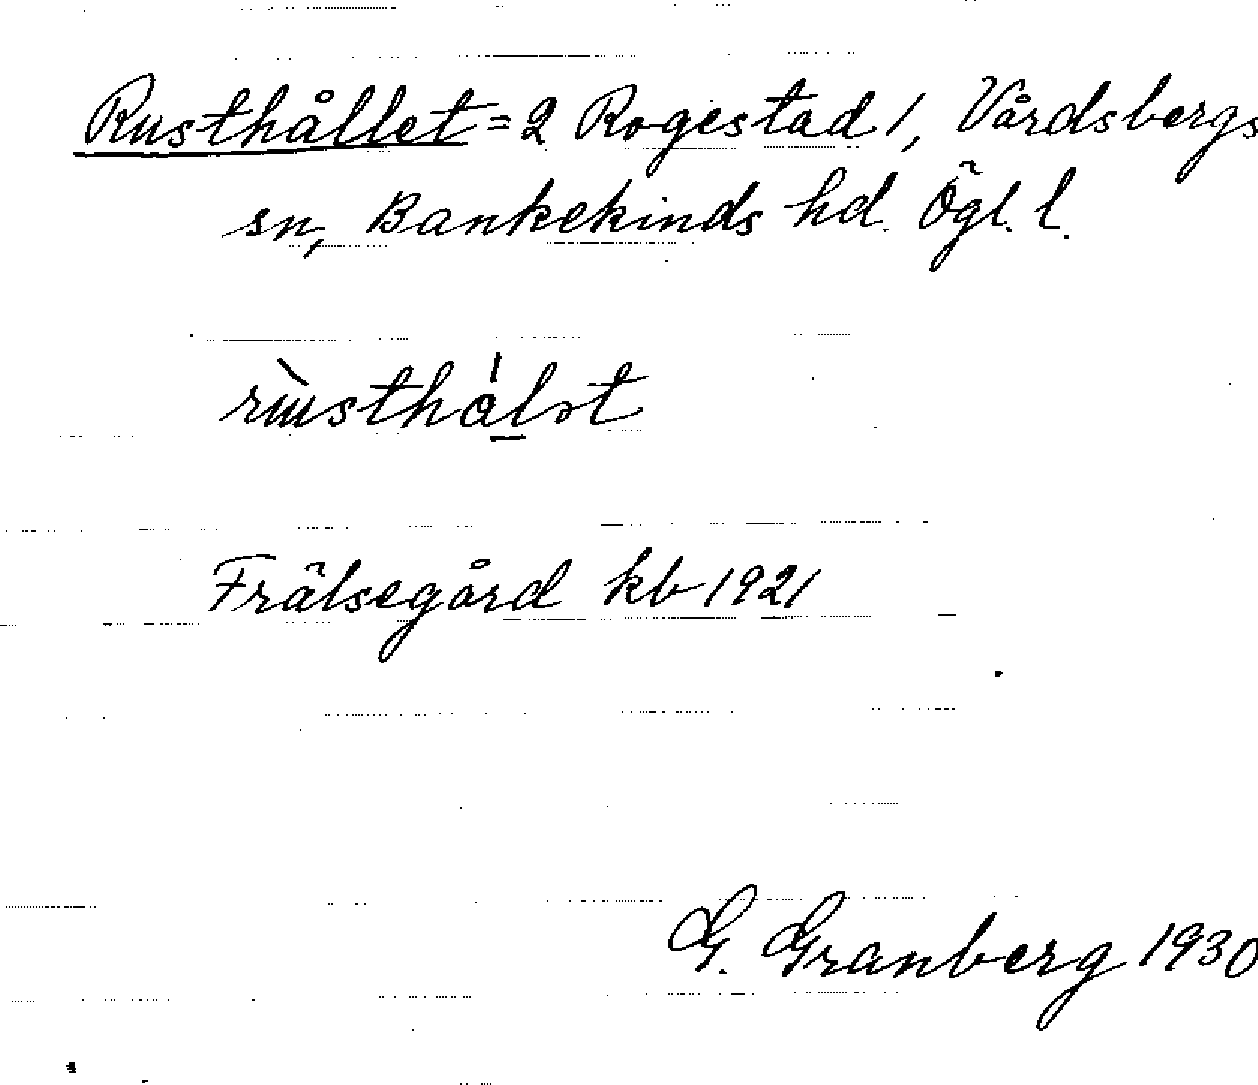 Rusthållet = 2 Rogestad 1, Vårdsbergs
sn, Bankekinds hd. Ögl. l.
Frälsegård kb 1921
G. Granberg 1930